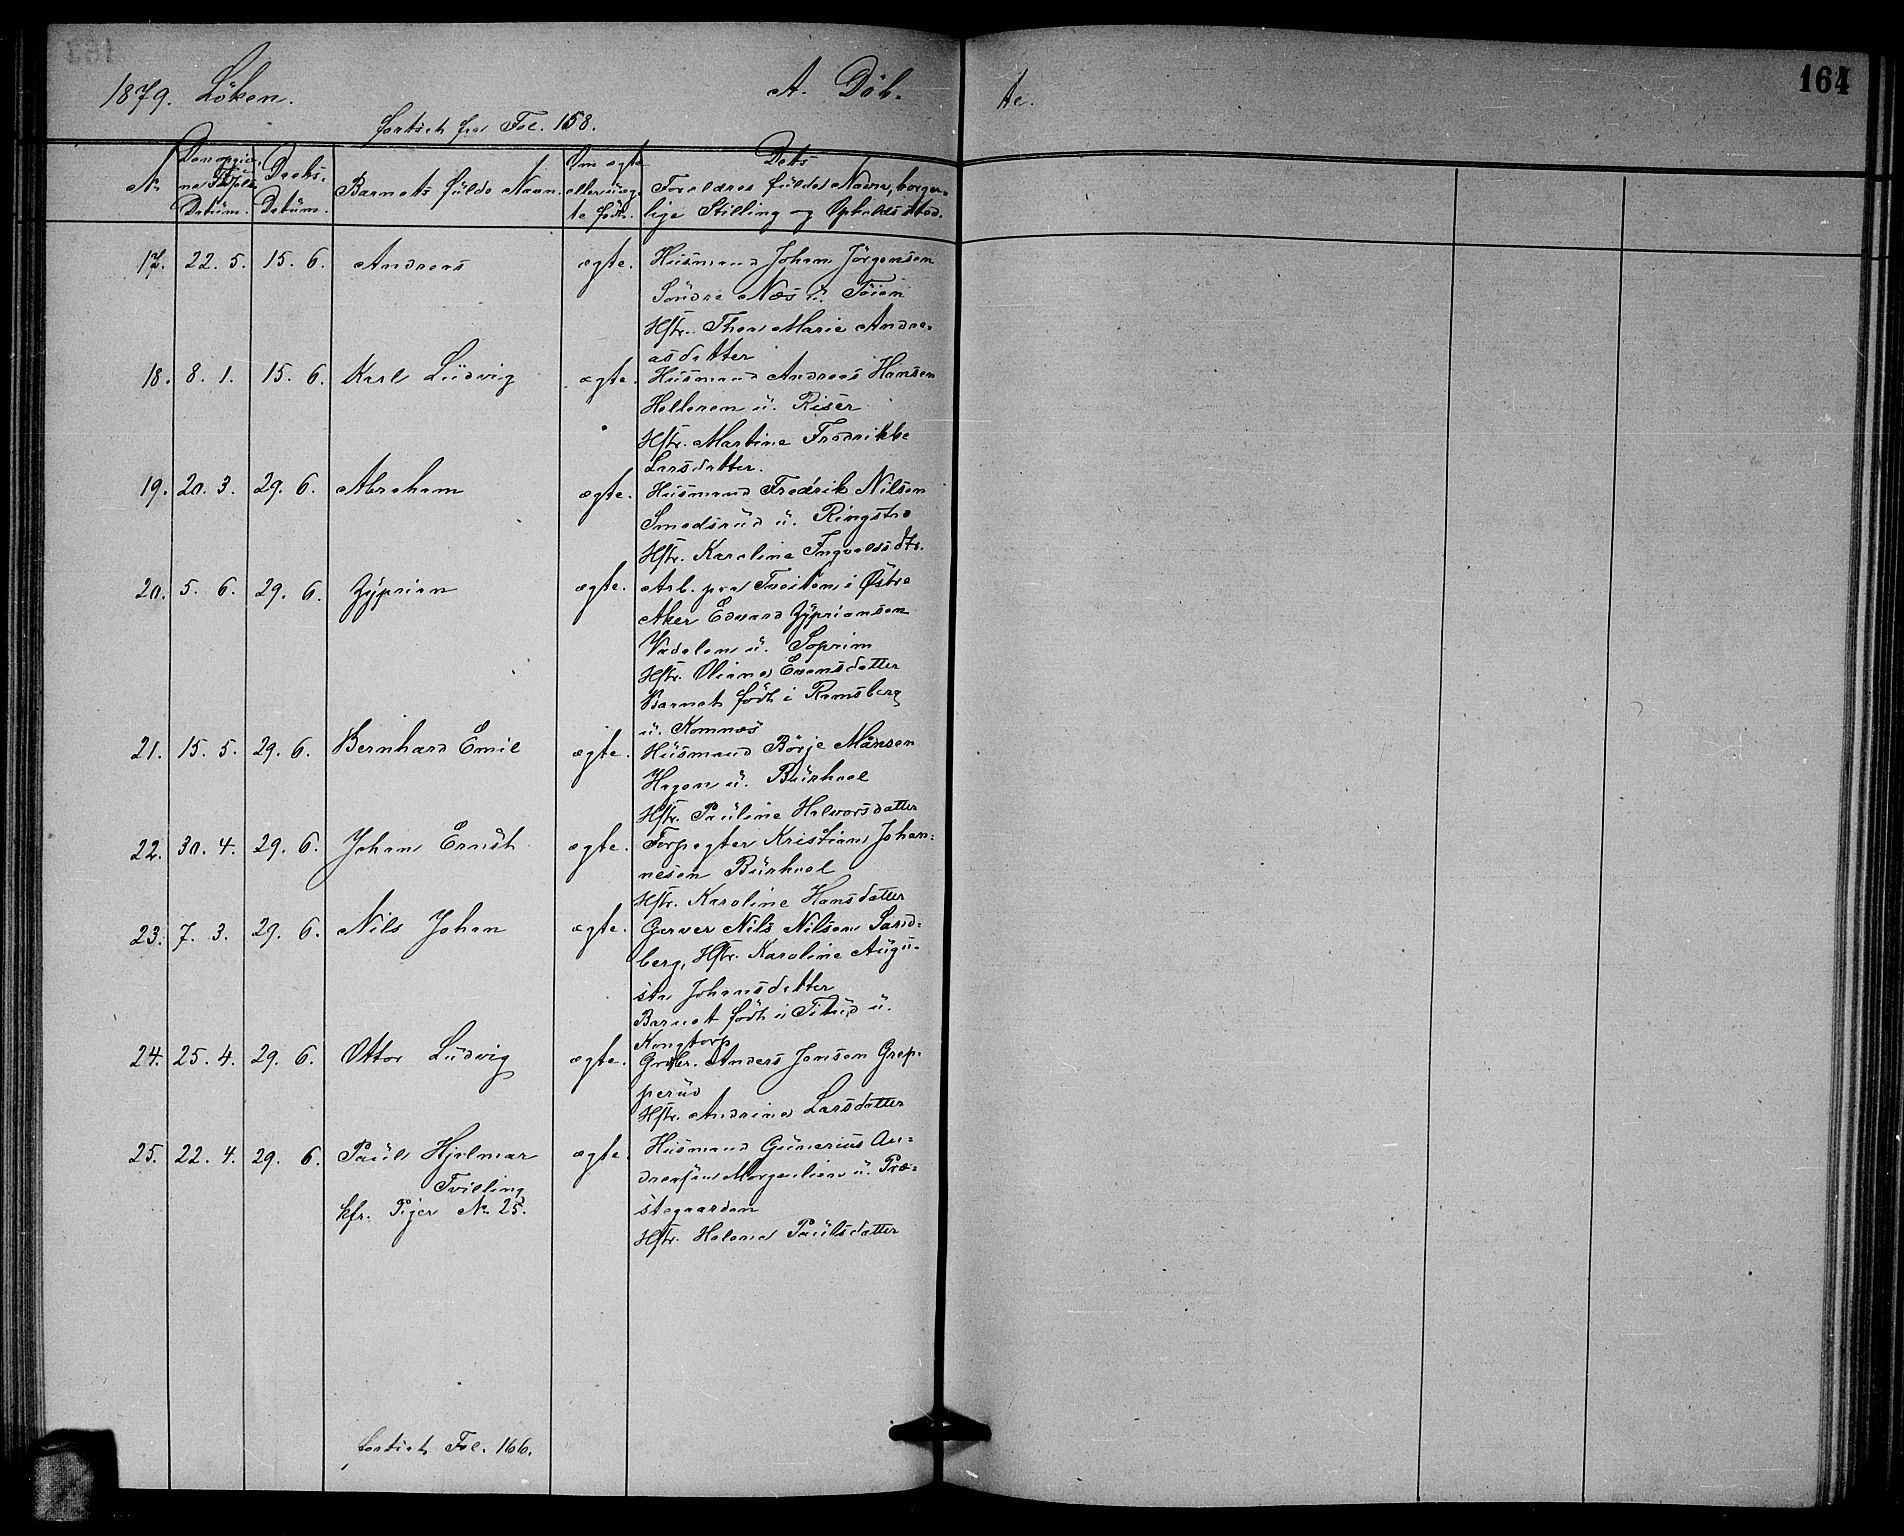 164
1879. Löken. A. Döb- te.
fortsat fra Fol. 158.
No
Datum.
Daabs-
Datum.
Barnets fulde Navn.
Om ægte
eller uæg-
te født.
Dets
Forældres fulde Navne, borger-
lige Stilling og Opholdssted.
17. 22. 5. 15. 6. Andreas ægte. Husmand Johan Jörgensen
Söndre Næs u. Töien
Hstr. Thea Marie Andre-
asdatter
18. 8. 1. 15. 6. Karl Ludvig ægte. Husmand Andreas Hansen
Helleren u. Riser
Hstr. Martine Fredrikke
Larsdatter.
19. 20. 3. 29. 6. Abraham ægte. Husmand Fredrik Nilsen
Smedsrud u. Ringstad
Hstr. Karoline Ingvaldsdtr.
20. 5. 6. 29. 6. Zyprian ægte. Arb. paa Tveiten i Østre
Aker Edvard Zypriansen
Vadalen u. Soprim
Hstr. Oliana Evensdatter
Barnet født i Ramsberg
u. Komnæs
21. 15. 5. 29. 6. Bernhard Emil ægte. Husmand Börje Månsen
Hagen u. Burhol
Hstr. Pauline Halvorsdatter
22. 30. 4. 29. 6. Johan Ernst ægte. Forpagter Kristian Johan-
nesen Burhol
Hstr. Karoline Hansdatter
23. 7. 3. 29. 6. Nils Johan ægte. Garver Nils Nilsen Sand-
berg, Hstr. Karoline Augu-
sta Johansdatter
Barnet født i u.
Kongtorp
24. 25. 4. 29. 6. Ottar Ludvig ægte. Grdbr. Anders Jensen Grep-
perud
Hstr. Andrine Larsdatter
25. 22. 4. 29. 6. Paul Hjalmar ægte. Husmand Gunerius An-
Tvilling dreasen Morgenlien u. Præ-
kfr. Piger No 25. stegaarden
Hstr. Helene Paulsdatter
fortsat Fol. 166.